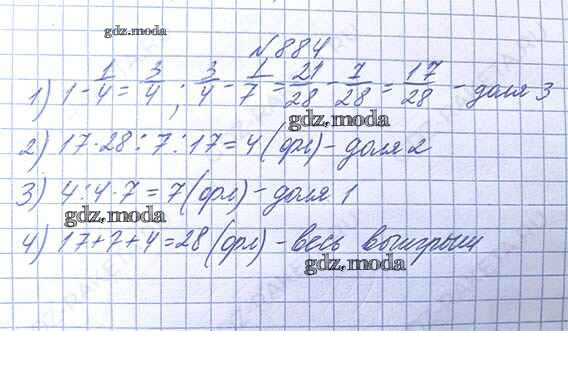 gdz.moda
№884
1) 1 - 1/4 = 3/4 ; 3/4 - 1/7 = 21/28 - 7/28 = 17/28 - доля 3
gdz.moda
2) 17·28:7:17=4(фл) - доля 2
3) 4:4·7=7(фрл) - доля 1
gdz.moda
4) 17+7+4=28(фрл) - весь выигрыш
gdz.moda